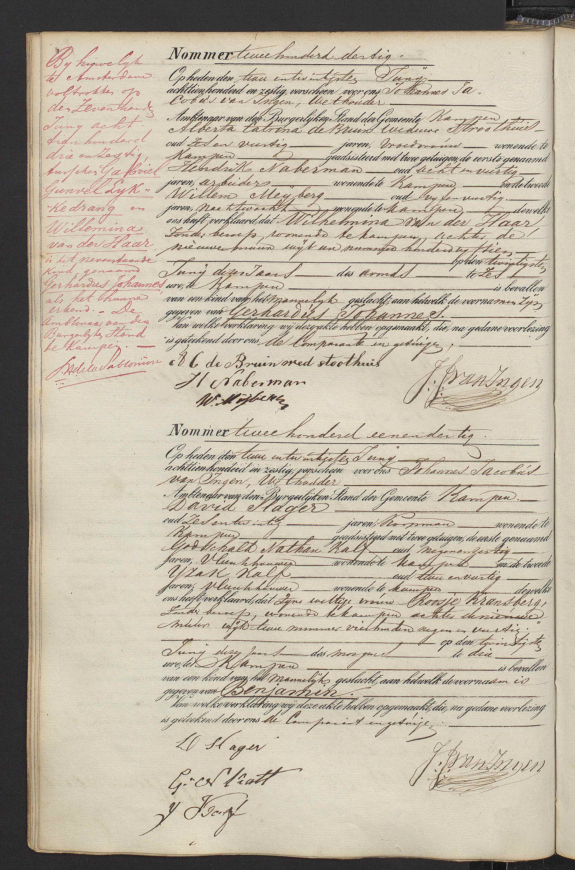 By huwelijk
te Amsterdam
voltrokken op
den Zevenden
Juny acht
tienhonderd
drie en tachtig
tusschen Gabriel
Kedrang en
Willemina
van der Haar
is het nevenstaande
kind, genaamd
Gerhardus Johannes
als het hunne
erkend. — De
Ambtenaar van den
Burgerlijken Stand
te Kampen
Nommer twee honderd dertig.
Op heden den twee en twintigsten Juny
achttienhonderd en zestig, verscheen voor ons Johannes Ja-
cobus van Ingen, Wethouder
Ambtenaar van den Burgerlijken Stand der Gemeente Kampen
Alberta Catrina de Bruin weduwe Stroothuis
oud Zes en veertig jaren, Vroedvrouw wonende te
Kampen geadsisteerd met twee getuigen, de eerste genaamd
Hendrik Naberman oud acht en veertig
jaren, arbeider wonende te Kampen en de tweede
Willem Meyberg oud vyf en veertig
jaren, Nachtwacht wonende te Kampen dewelke
ons heeft verklaard, dat Wilhelmina van der Haar,
Zonder beroep, wonende te Kampen achter de
nieuwe muur wijk een nummer honderd vyftien,
op den twintigsten
Juny dezes Jaars des avonds te Zes
ure, te Kampen is bevallen
van een kind van het Mannelijk geslacht, aan hetwelk de voornamen Zijn
gegeven van Gerhardus Johannes.
Van welke verklaring wij deze akte hebben opgemaakt, die, na gedane voorlezing
is geteekend door ons, de Comparante en getuigen.
A C de Bruin wed stoothuis
H Naberman
W. Mijberg
J. J. van Ingen
Nommer twee honderd een en dertig.
Op heden den twee en twintigsten Juny
achttienhonderd en zestig, verscheen voor ons Johannes Jacobus
van Ingen, Wethouder
Ambtenaar van den Burgerlijken Stand der Gemeente Kampen
David Stager
oud Zes en twintig jaren, Koopman wonende te
Kampen geadsisteerd met twee getuigen, de eerste genaamd
Godschalk Nathan Kalf oud negenenzestig
jaren, Vleeschhouwer wonende te Kampen en de tweede
Yzak Kalf oud twee en veertig
jaren, Vleeschhouwer wonende te Kampen dewelke
ons heeft verklaard, dat Zyne wettige vrouw Roosje Kransberg,
Zonder beroep, wonende te Kampen achter de nieuwe
muur wijk twee nummer vierhonderd negen en veertig
op den twintigsten
Juny dezes Jaars des morgens te drie
ure, te Kampen is bevallen
van een kind van het Mannelijk geslacht, aan hetwelk de voornaam is
gegeven van Benjamin.
Van welke verklaring wij deze akte hebben opgemaakt, die, na gedane voorlezing
is geteekend door ons, de Comparant en getuigen.
D Stager
J. J. van Ingen